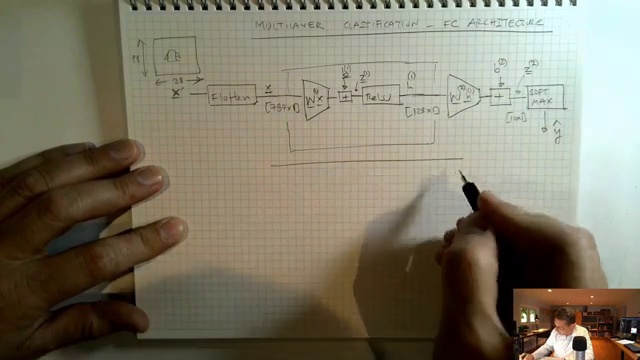 MULTILAYER CLASSIFICATION - FC ARCHITECTURE
28
28
x' Flatten x [784x1] W⁽¹⁾x b⁽¹⁾ + z⁽¹⁾ ReLU h⁽¹⁾ [128x1] W⁽²⁾h⁽¹⁾ b⁽²⁾ + z⁽²⁾ [10x1] SOFT
MAX
ŷ